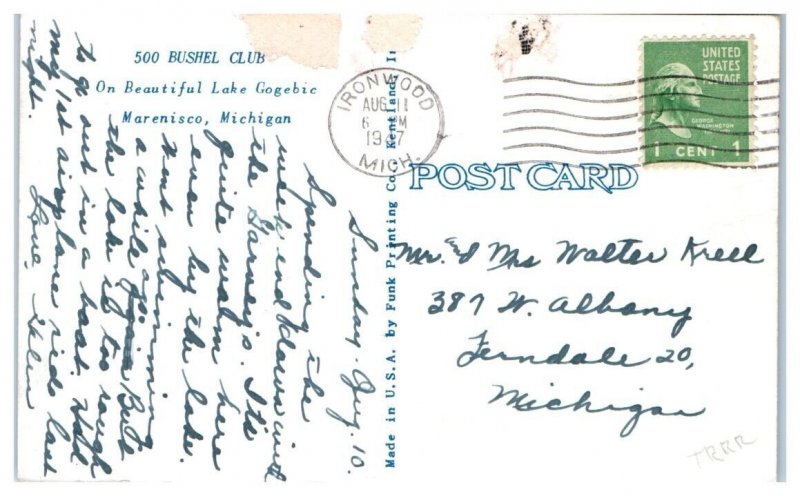 500 BUSHEL CLUB
On Beautiful Lake Gogebic
Marenisco, Michigan
Sunday. Aug. 10.
Spending the
week end down with
the Garney's. It's
quite warm here
even by the lake.
Went swimming
a while ago. But
the lake is too rough
to go out in a boat. Had
my 1st airplane ride last
night.
Love, Helen
Made in U.S.A. by Funk Printing Co., Kentland, In
IRONWOOD
AUG 11
6 PM
1947
MICH.
UNITED
STATES
POSTAGE
GEORGE
WASHINGTON
1 CENT 1
POST CARD
Mr. & Mrs Walter Krell
387 W. Albany
Ferndale 20,
Michigan
TRRR